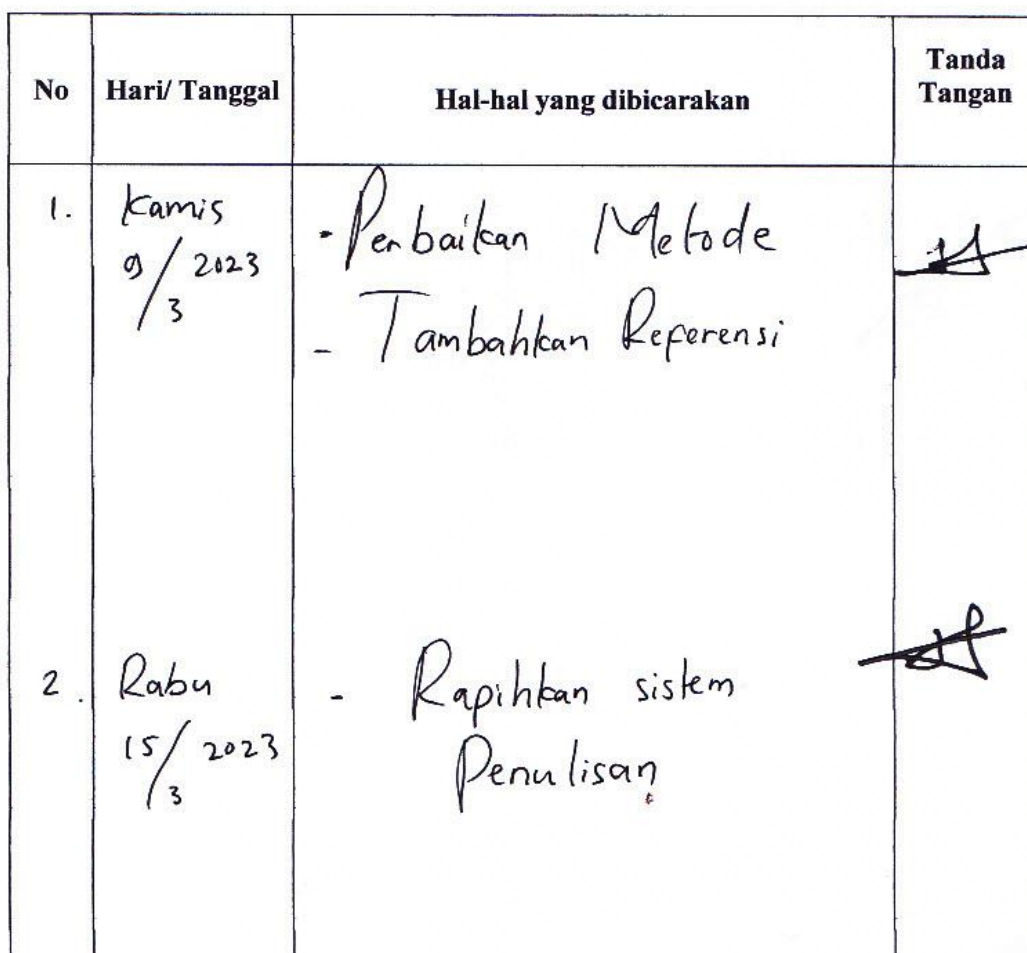 No Hari/ Tanggal Hal-hal yang dibicarakan Tanda Tangan
1. Kamis 9/3 2023
- Perbaikan Metode
- Tambahkan Referensi
2. Rabu 15/3 2023
- Rapihkan sistem
Penulisan